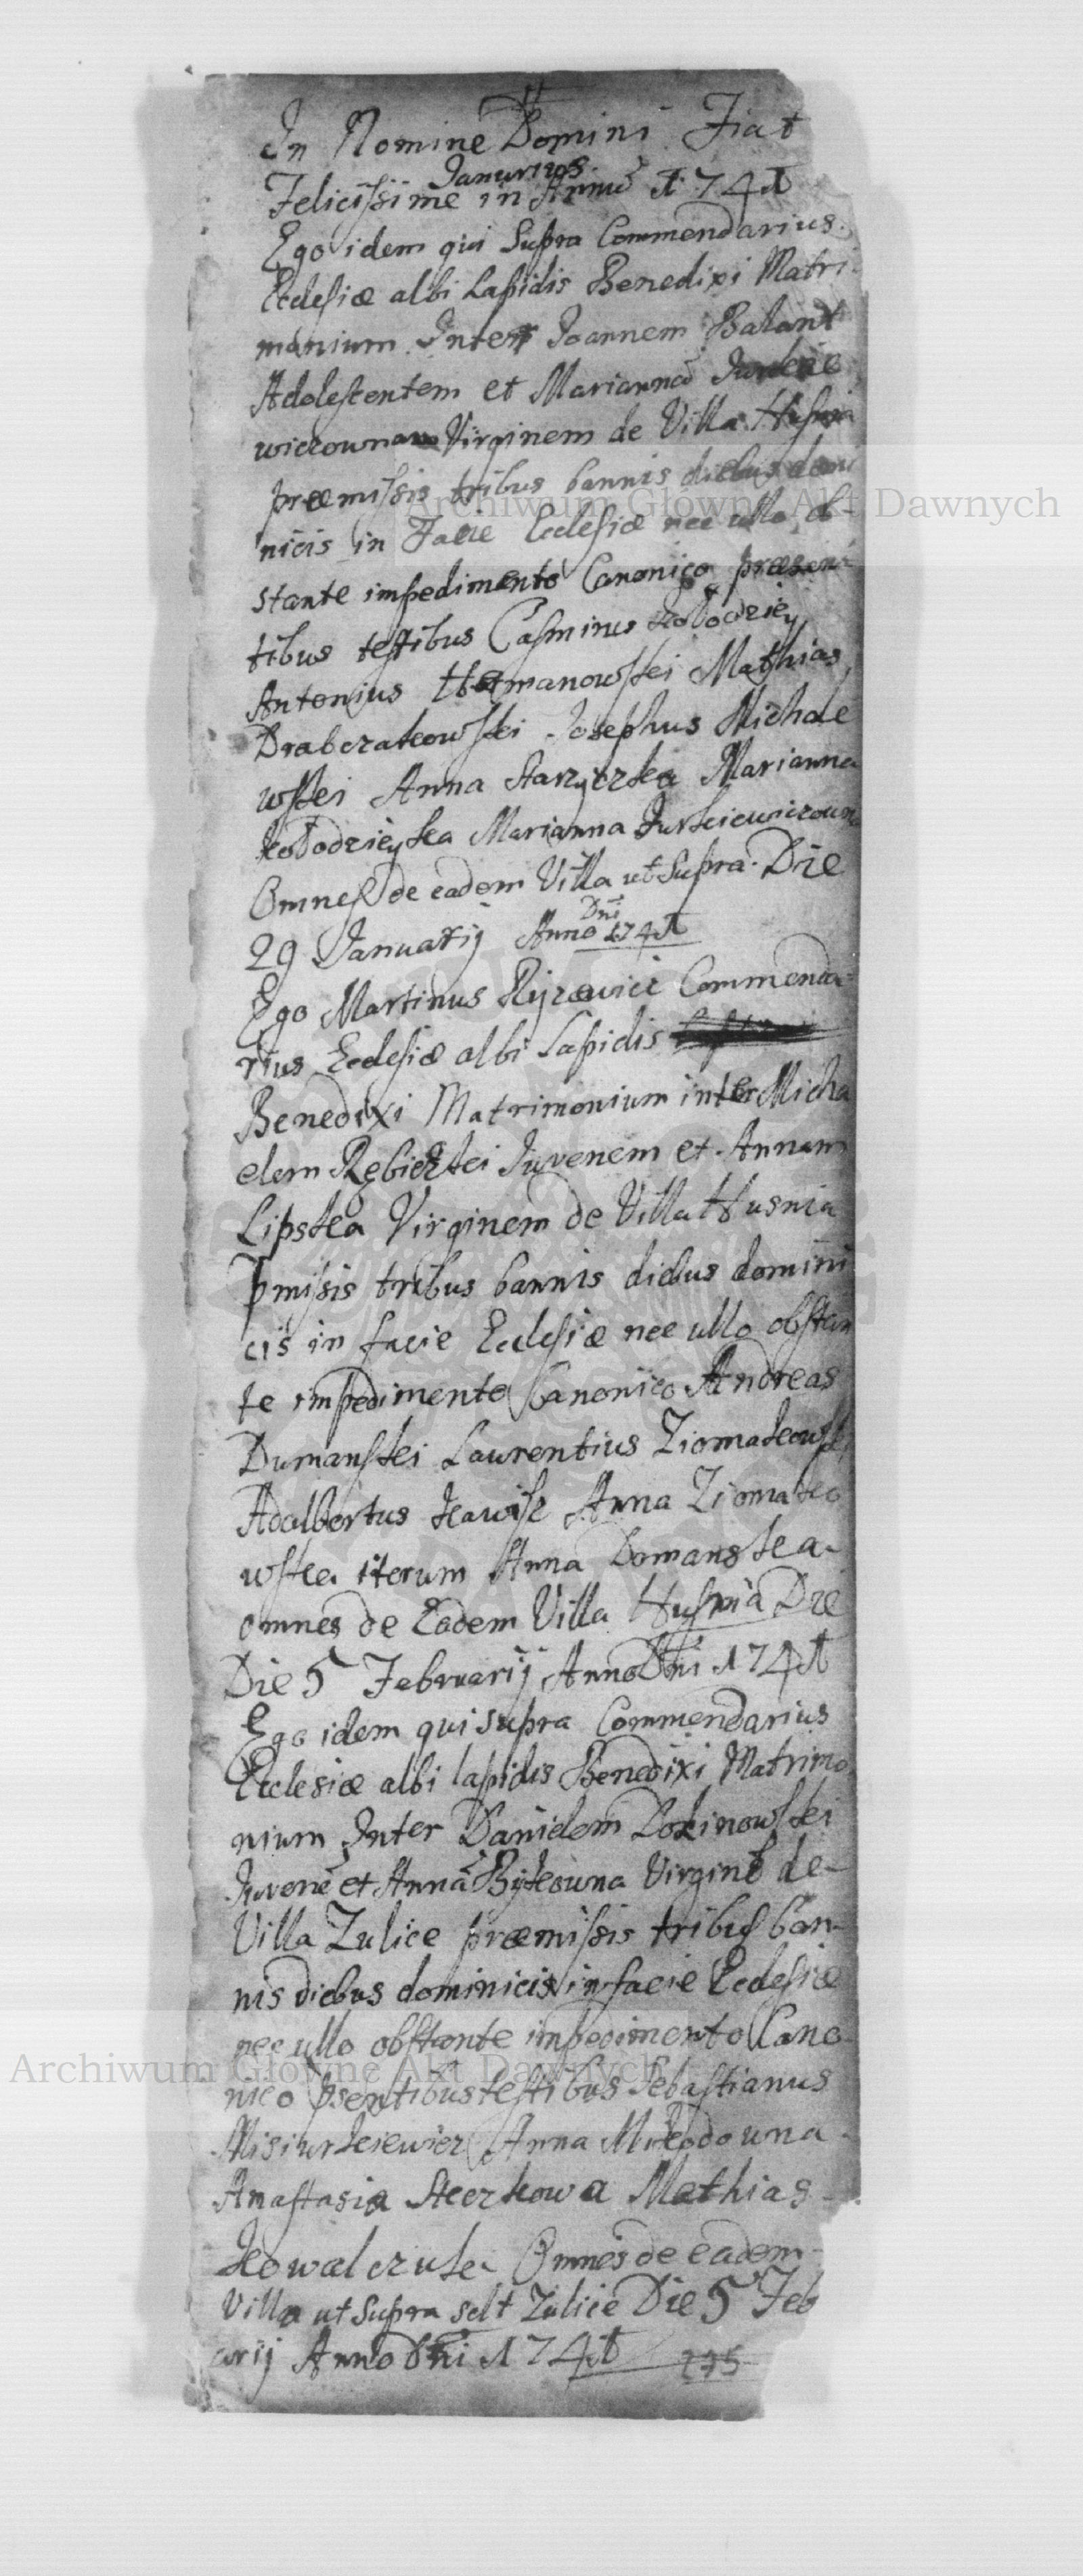 In Nomine Domini Fiat
Januarius.
Felicissime in Annū 1741
Ego idem qui Supra Commendarius.
Ecclesiæ albi Lapidis Benedixi Matri-
manium Inter Joannem Bałant
Adolescentem et Mariannā
wiczownam Virginem de Villa Husnia
præmissis tribus bannis diebus domi
nicis in Facie Ecclesiæ nec ullo ob-
stante impedimento Canonico præsen-
tibus testibus Casminus Kołodziey
Antonius Hetmanowski Mathias
Drabczakowski Josephus Michale
wski Anna Starzyczka Marianna
Kołodzieyka Marianna Jurkiewiczowna
Omnes de eadem Villa ut Supra. Die
29 Januarij Anno Dni 1741
Ego Martinus Ryzewicz Commenda-
rius Ecclesiæ albi Lapidis
Benedixi Matrimonium inter Micha
elem Rębiczki Juvenem et Annam
Lipska Virginem de Villa Husnia
pmissis tribus bannis diebus domini
cis in facie Ecclesiæ nec ullo obstan
te impedimento Canonico Andreas
Dumanski Laurentius Ziomakowski
Adalbertus Kawisz Anna Ziomako
wska iterum Anna Domanska-
omnes de Eadem Villa Husnia Die
Die 5 Februarij Anno Dni 1741
Ego idem qui supra Commendarius
Ecclesiæ albi lapidis Benedixi Matrimo
nium Inter Danidem Lokinowski
Juvenē et Annā Bykowna Virginē de-
Villa Zulice præmissis tribus ban-
nis diebus dominicis in facie Ecclesiæ
nec ullo obstante impedimento Cano-
nico psentibus testibus Sebastianus
Misiurkiewicz Anna Mikodowna-
Anastasia Skerkowa Mathias-
Kowalczuk Omnes de eadem-
Villa ut Supra sclt Zulice Die 5 Feb
arij Anno Dni 1741 275
Archiwum Główne Akt Dawnych
Archiwum Główne Akt Dawnych